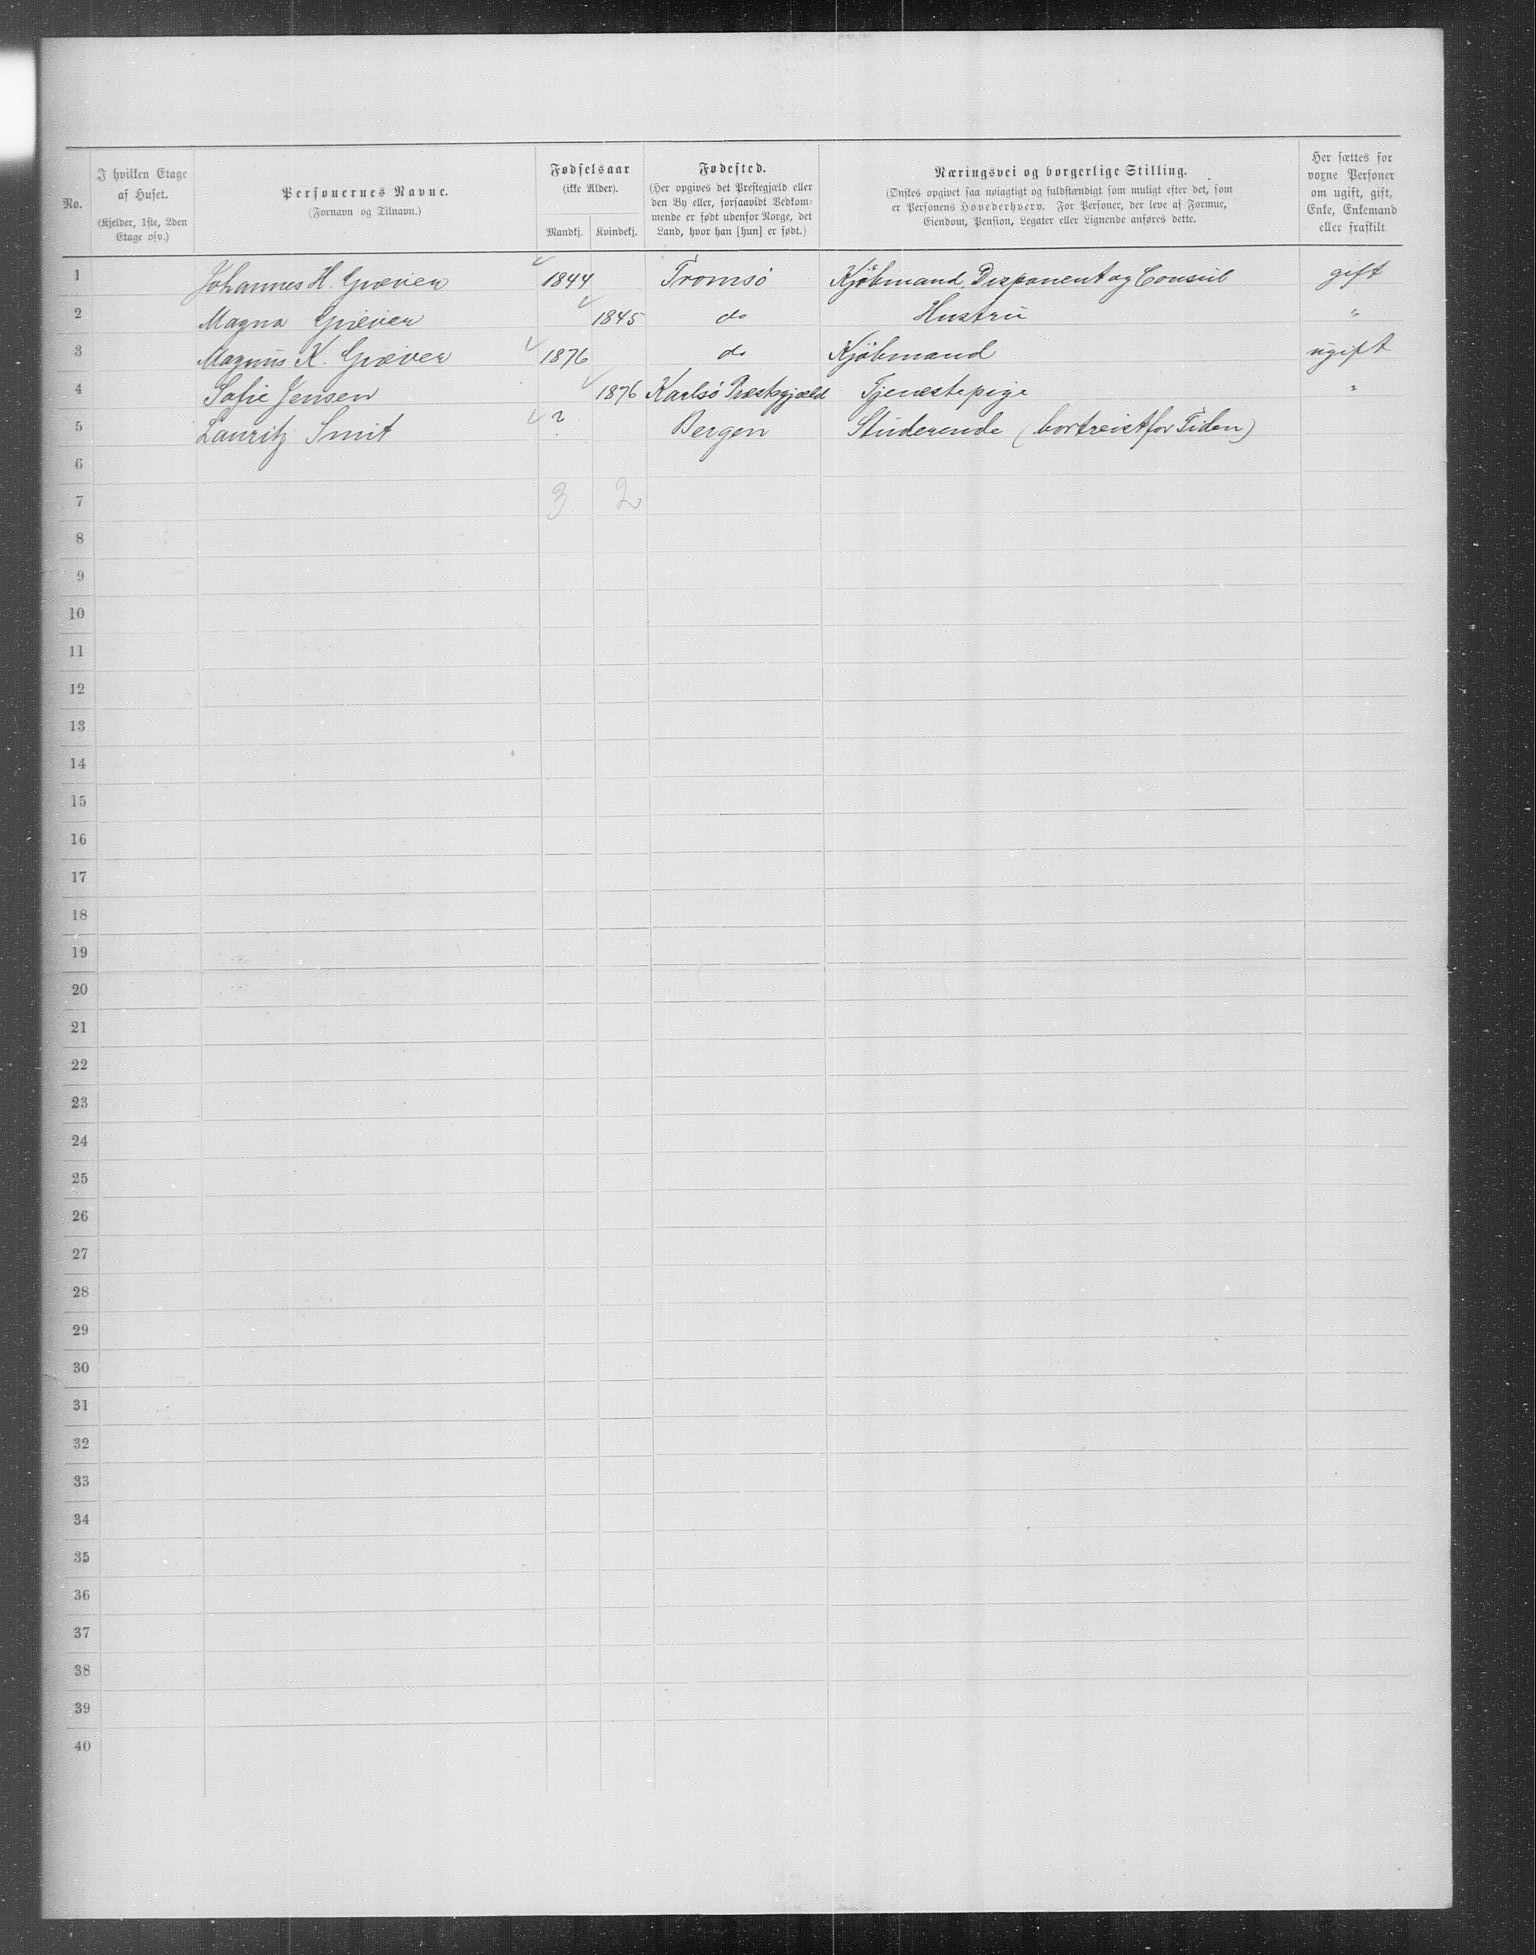 No.
I hvilken Etage af Huset.
(Kjelder, 1ste, 2den Etage osv.)
Personernes Navne.
(Fornavn og Tilnavn.)
Fødselsaar
(ikke Alder).
Mandkj. Kvindekj.
Fødested.
(Her opgives det Prestegjæld eller
den By eller, forsaavidt Vedkom-
mende er født udenfor Norge, det
Land, hvor han [hun] er født.)
Næringsvei og borgerlige Stilling.
(Ønskes opgivet saa nøiagtigt og fuldstændigt som muligt efter det, som
er Personens Hovederhverv. For Personer, der leve af Formue,
Eiendom, Pension, Legater eller Lignende anføres dette.
Her sættes for
voxne Personer
om ugift, gift,
Enke, Enkemand
eller fraskilt
1 Johannes H. Giæver 1844 Tromsö Kjöbmand, Disponent og Consul gift
2 Magna Giæver 1845 do Hustru "
3 Magnus K. Giæver 1876 do Kjöbmand ugift
4 Sofie Jensen 1876 Karlsö Præstegjæld Tjenestepige "
5 Lauritz Smit ? Bergen Studerende (bortreist for Tiden)
6
7 3 2
8
9
10
11
12
13
14
15
16
17
18
19
20
21
22
23
24
25
26
27
28
29
30
31
32
33
34
35
36
37
38
39
40